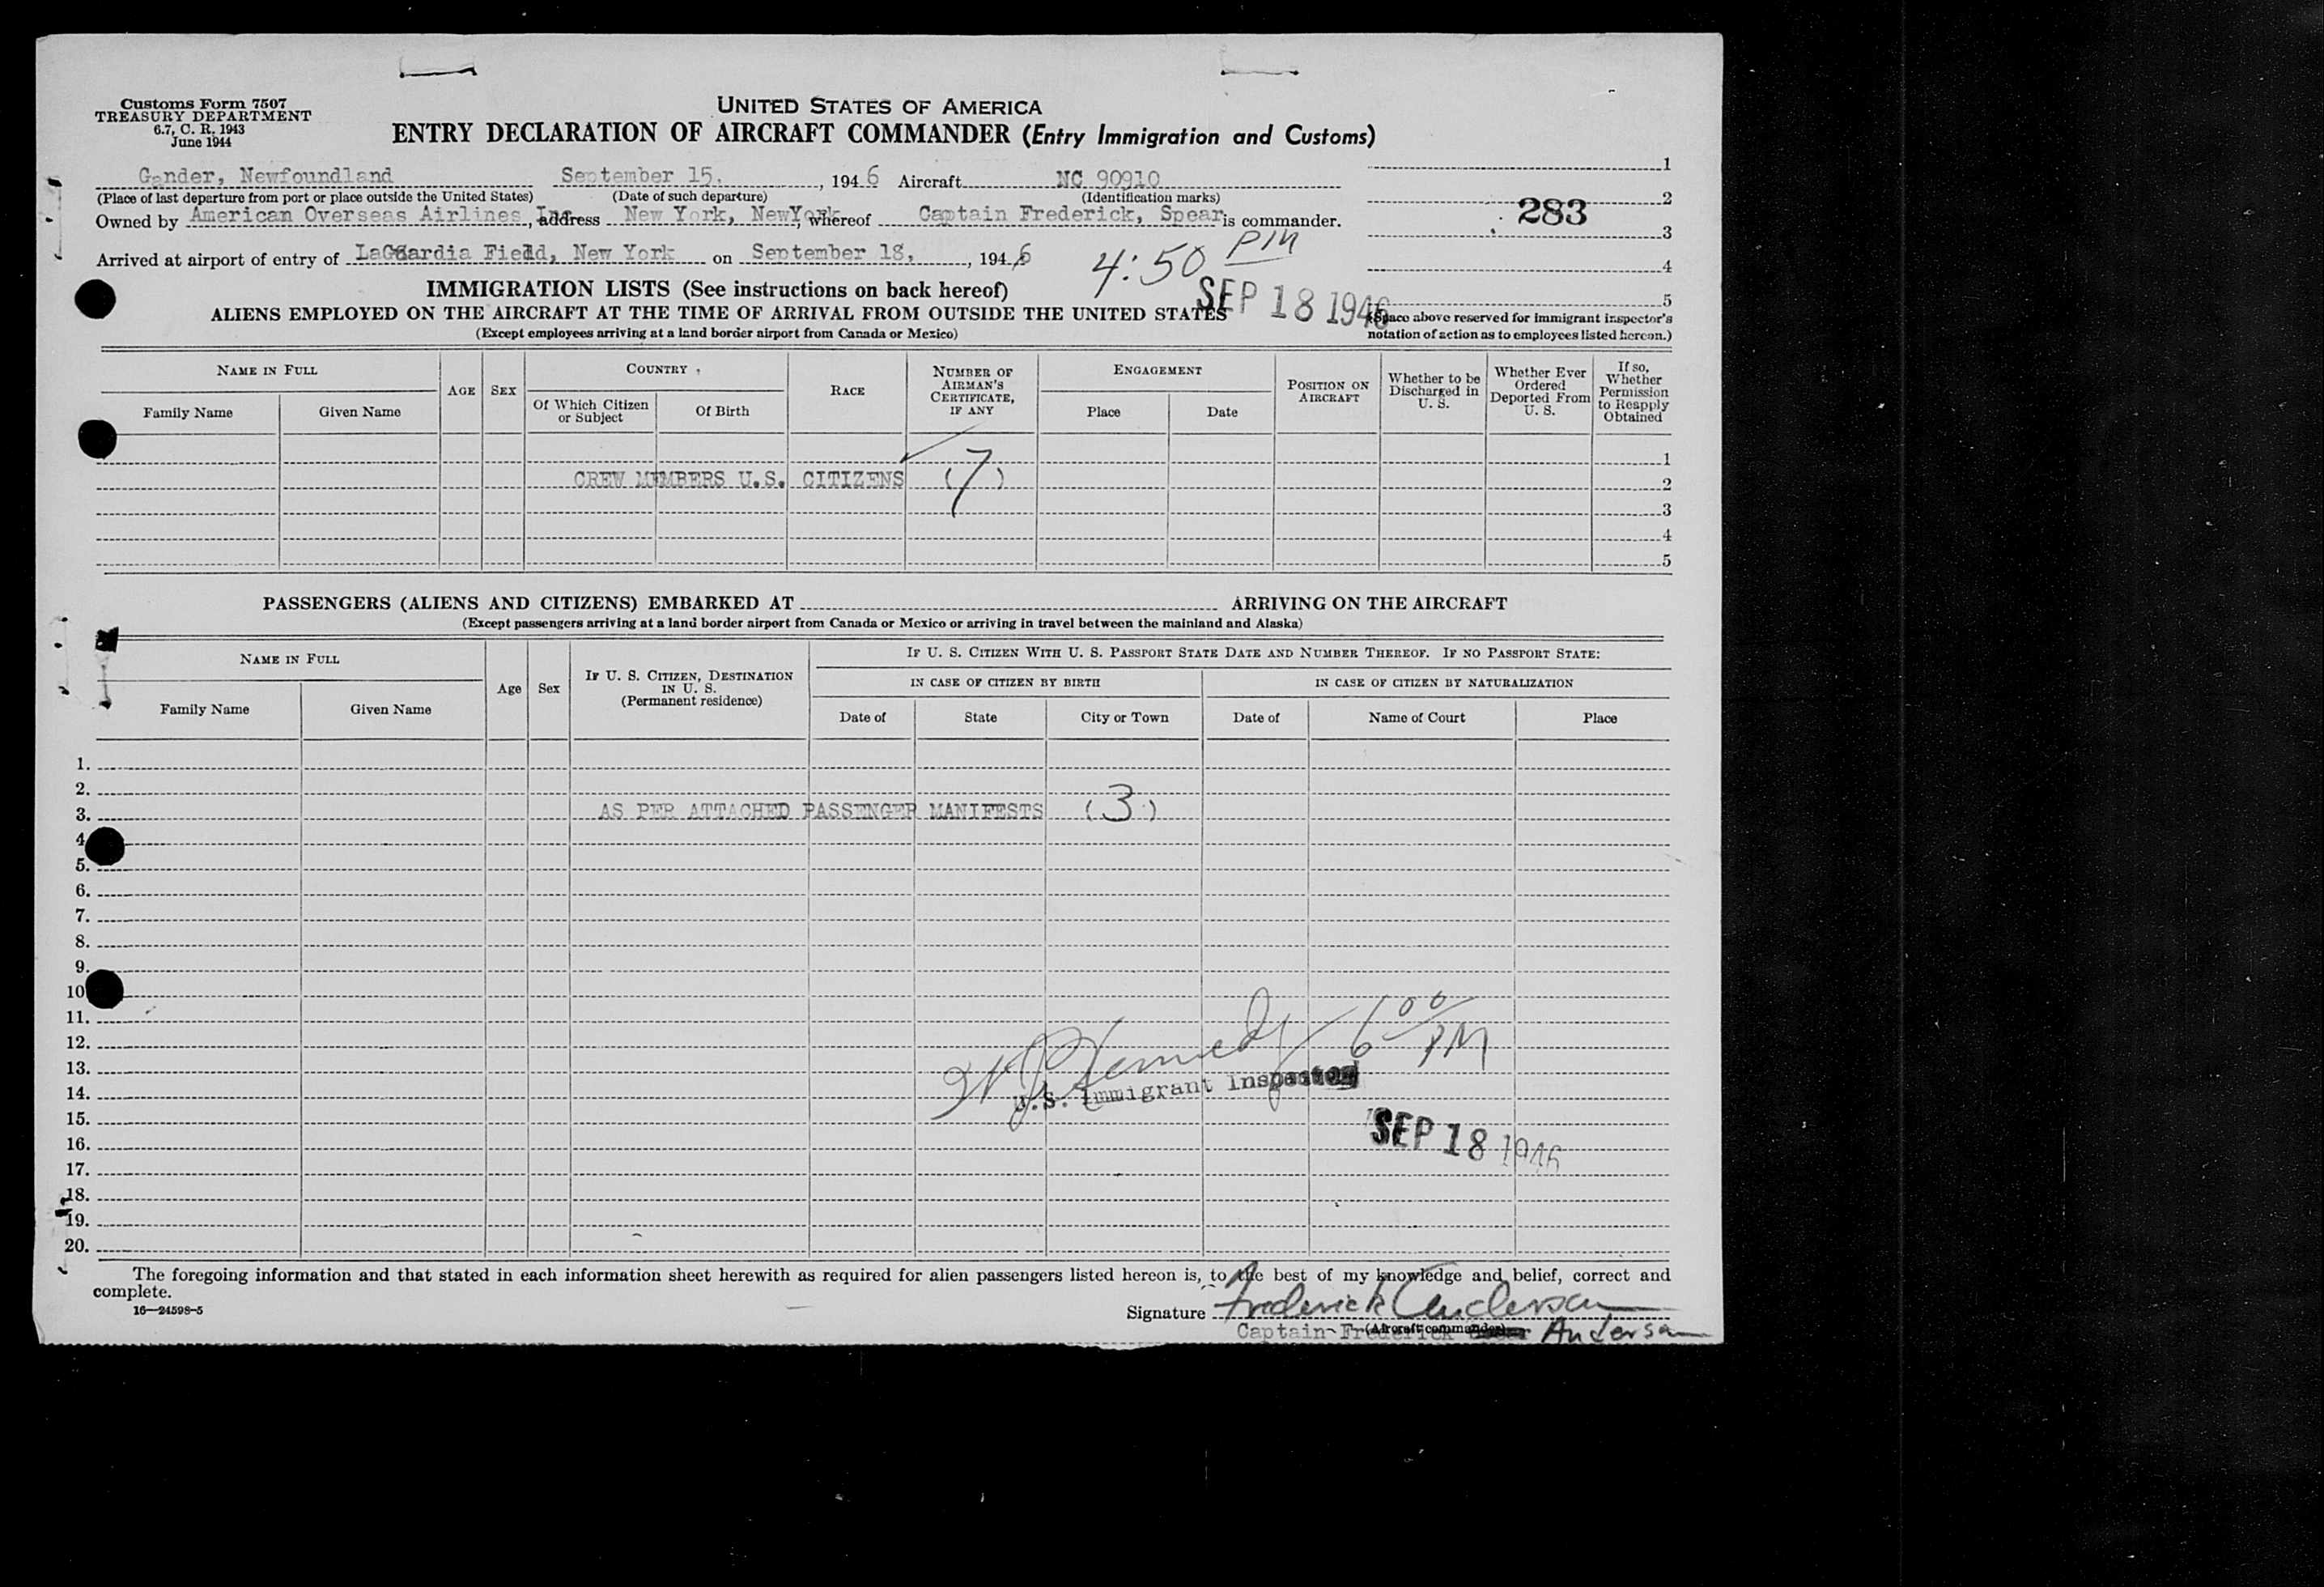 Customs Form 7507
TREASURY DEPARTMENT
6.7, C. R. 1943
June 1944
UNITED STATES OF AMERICA
ENTRY DECLARATION OF AIRCRAFT COMMANDER (Entry Immigration and Customs)
Gander, Newfoundland September 15, , 1946 Aircraft NC 90910
(Place of last departure from port or place outside the United States) (Date of such departure) (Identification marks)
Owned by American Overseas Airlines Inc, address New York, NewYork, whereof Captain Frederick, Spear is commander.
Arrived at airport of entry of LaGuardia Field, New York on September 18, , 1946
4:50 PM
SEP 18 1946
1
2
283
3
4
5
(Space above reserved for immigrant inspector's
notation of action as to employees listed hereon.)
IMMIGRATION LISTS (See instructions on back hereof)
ALIENS EMPLOYED ON THE AIRCRAFT AT THE TIME OF ARRIVAL FROM OUTSIDE THE UNITED STATES
(Except employees arriving at a land border airport from Canada or Mexico)
NAME IN FULL
Family Name Given Name
AGE
SEX
COUNTRY
Of Which Citizen or Subject Of Birth
RACE
NUMBER OF AIRMAN'S CERTIFICATE, IF ANY
ENGAGEMENT
Place Date
POSITION ON AIRCRAFT
Whether to be Discharged in U. S.
Whether Ever Ordered Deported From U. S.
If so, Whether Permission to Reapply Obtained
1
CREW MEMBERS U.S. CITIZENS (7) 2
3
4
5
PASSENGERS (ALIENS AND CITIZENS) EMBARKED AT ARRIVING ON THE AIRCRAFT
(Except passengers arriving at a land border airport from Canada or Mexico or arriving in travel between the mainland and Alaska)
NAME IN FULL
Family Name Given Name
Age
Sex
IF U. S. CITIZEN, DESTINATION IN U. S.
(Permanent residence)
IF U. S. CITIZEN WITH U. S. PASSPORT STATE DATE AND NUMBER THEREOF. IF NO PASSPORT STATE:
IN CASE OF CITIZEN BY BIRTH IN CASE OF CITIZEN BY NATURALIZATION
Date of State City or Town Date of Name of Court Place
1.
2.
3. AS PER ATTACHED PASSENGER MANIFESTS (3)
4
5.
6.
7.
8.
9.
10
11.
12.
13.
14.
15.
16.
17.
18.
19.
20.
Kennedy 6 00 PM
U.S. Immigrant Inspector
SEP 18 1946
The foregoing information and that stated in each information sheet herewith as required for alien passengers listed hereon is, to the best of my knowledge and belief, correct and
complete.
16—24598-5
Signature Frederick Anderson
(Aircraft commander)
Captain Frederick Anderson